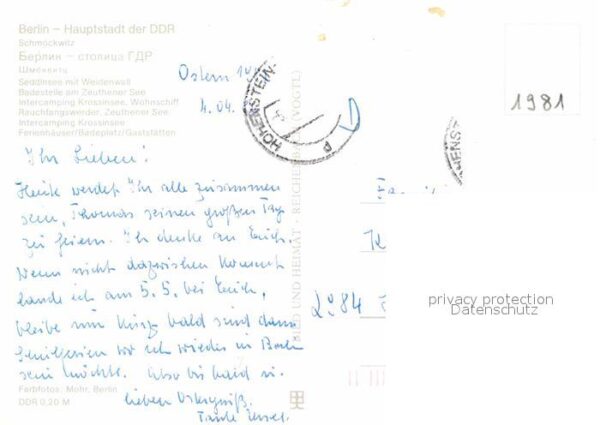 Berlin – Hauptstadt der DDR
Schmöckwitz
Берлин – столица ГДР
Шмёквитц
Seddinsee mit Weidenwall
Badestelle am Zeuthener See
Intercamping Krossinsee, Wohnschiff
Rauchfangswerder, Zeuthener See
Intercamping Krossinsee
Ferienhäuser/Badeplatz/Gaststätten
Ostern
4.04.
1981
HOHENSTEIN-
Ihr Lieben!
Heute werdet Ihr alle zusammen
sein, Thomas seinen großen Tag
zu feiern. Ich denke an Euch.
Wenn nicht dazwischen kommt
lande ich am 5.5. bei Euch,
bleibe nur kurz bald sind dann
wo ich wieder in Berlin
sein möchte. Also bis bald
lieben Ostergruß
Tante
BILD UND HEIMAT · REICHENBACH (VOGTL)
privacy protection
Datenschutz
Farbfotos: Mohr, Berlin
DDR 0,20 M